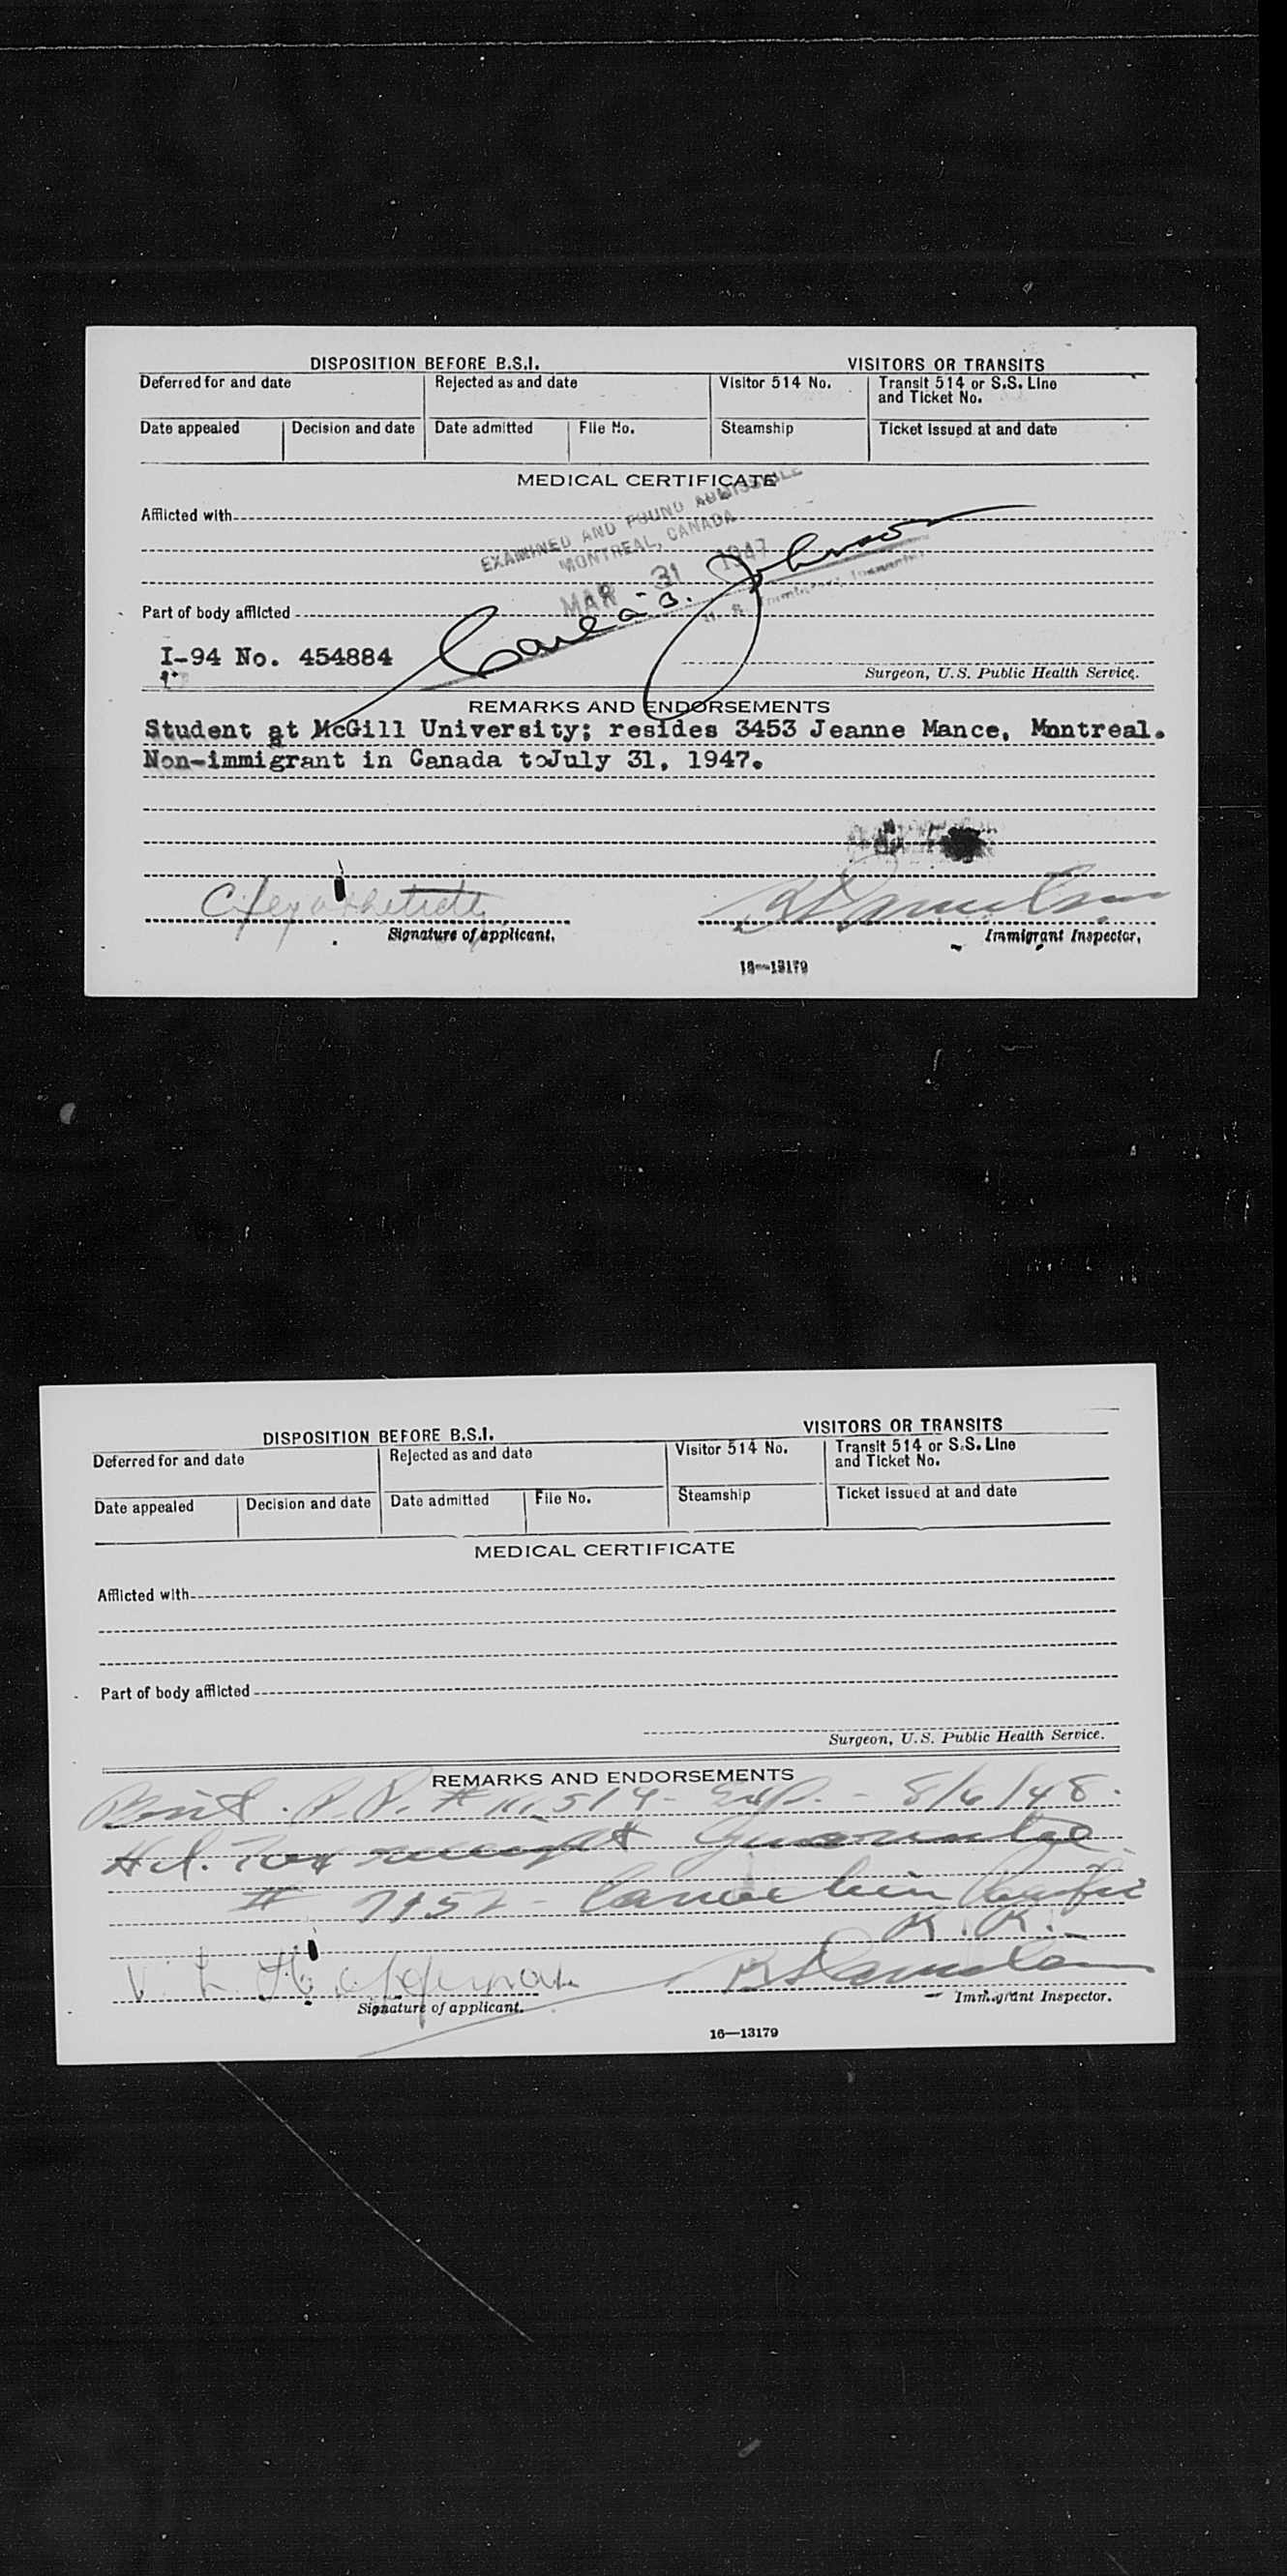 DISPOSITION BEFORE B.S.I. VISITORS OR TRANSITS
Deferred for and date Rejected as and date Visitor 514 No. Transit 514 or S.S. Line
and Ticket No.
Date appealed Decision and date Date admitted File No. Steamship Ticket issued at and date
MEDICAL CERTIFICATE
Afflicted with
EXAMINED AND FOUND ADMISSIBLE
MONTREAL, CANADA
MAR 31 1947
Carl B. Johnson
Part of body afflicted
I-94 No. 454884
Surgeon, U.S. Public Health Service.
REMARKS AND ENDORSEMENTS
Student at McGill University; resides 3453 Jeanne Mance, Montreal.
Non-immigrant in Canada toJuly 31, 1947.
Signature of applicant. Immigrant Inspector.
16—13179
DISPOSITION BEFORE B.S.I. VISITORS OR TRANSITS
Deferred for and date Rejected as and date Visitor 514 No. Transit 514 or S.S. Line
and Ticket No.
Date appealed Decision and date Date admitted File No. Steamship Ticket issued at and date
MEDICAL CERTIFICATE
Afflicted with
Part of body afflicted
Surgeon, U.S. Public Health Service.
REMARKS AND ENDORSEMENTS
Brit. P.P. # Exp. - 8/6/48.
Hd. Tax receipt Guarantee
# 7952 - Canadian Pacific
R.R.
Signature of applicant. Immigrant Inspector.
16—13179